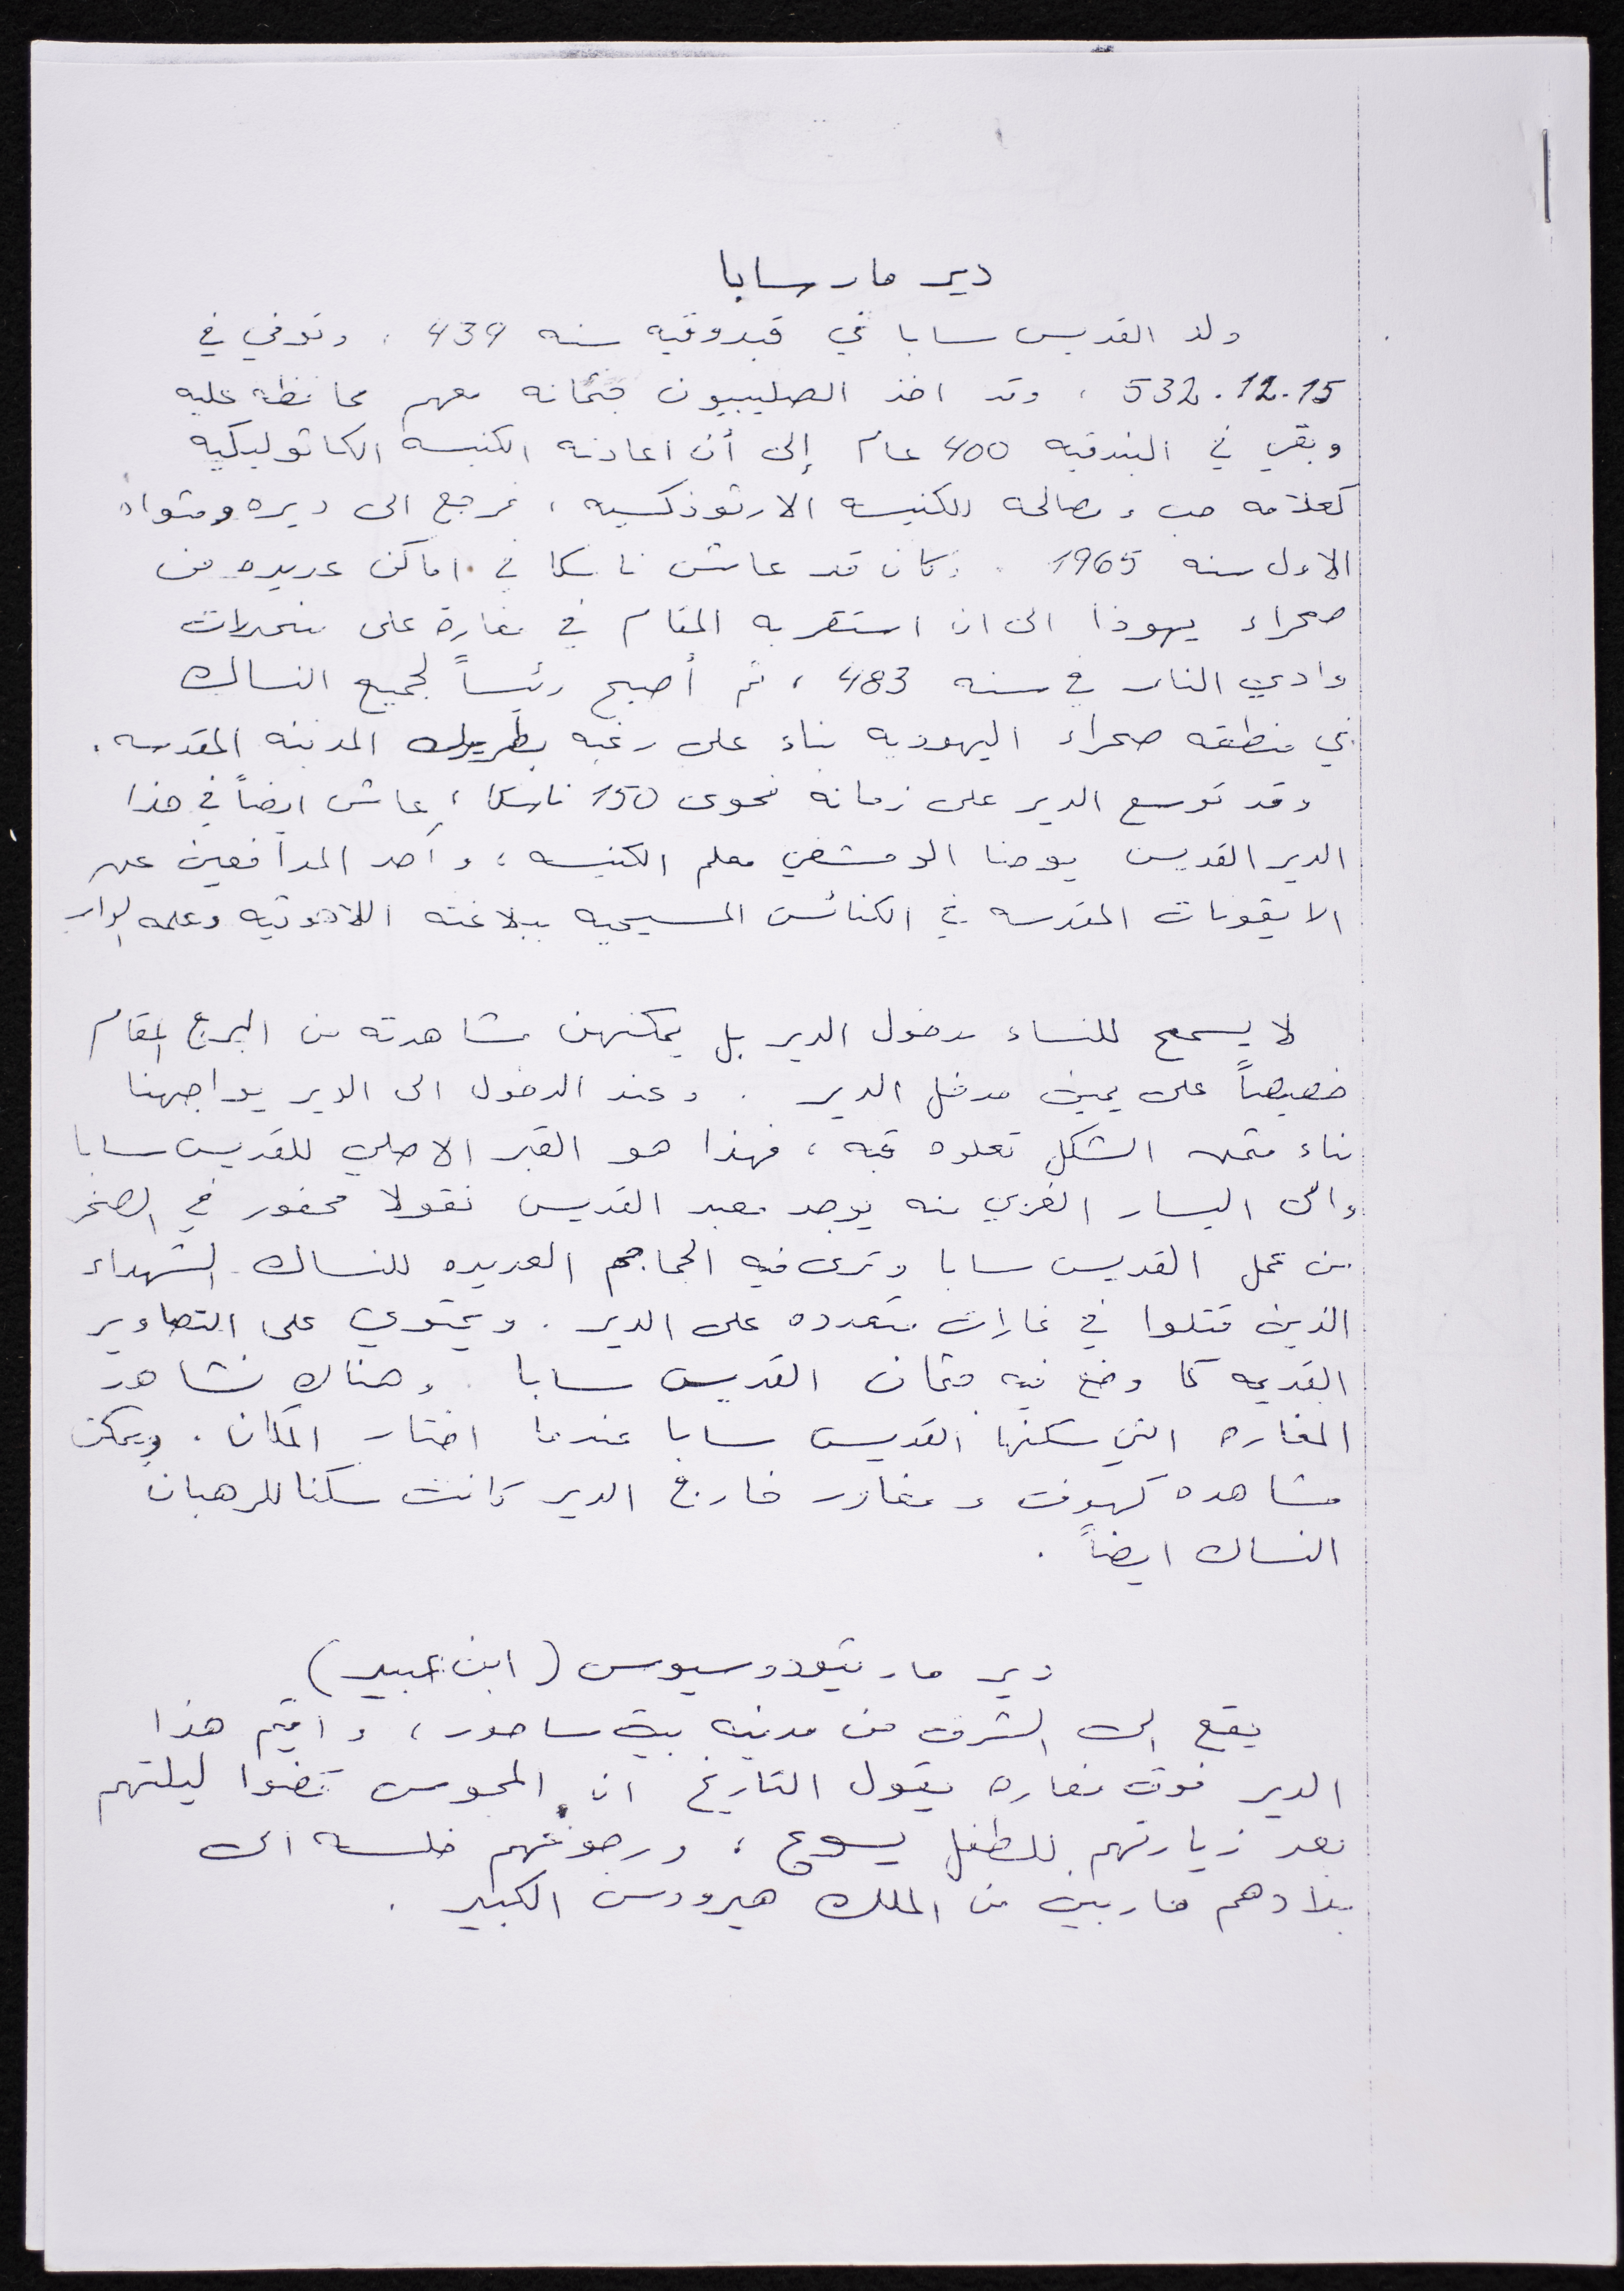 دير مار سابا
ولد القديس سابا في قبدوقيه سنه 439 ، وتوفي في
532.12.15 ، وقد اخذ الصليبيون جثمانه معهم محافظه عليه
وبقي في البندقيه 400 عام إلى أن اعادته الكنيسه الكاثوليكيه
كعلامه حب ومصالحه للكنيسه الارثوذكسيه ، فرجع الى ديره ومثواه
الاول سنه 1965 . وكان قد عاش ناسكا في اماكن عديده من
صحراء يهوذا الى ان استقر به المقام في مغارة على منحدرات
وادي النار في سنه 483 ، ثم أصبح رئيساً لجميع النساك
في منطقه صحراء اليهوديه بناء على رغبه بطريرك المدينه المقدسه .
وقد توسع الدير على زمانه فحوى 150 ناسكا ، عاش ايضاً في هذا
الدير القديس يوحنا الدمشقي معلم الكنيسه ، وأحد المدافعين عن
الايقونات المقدسه في الكنائس المسيحيه ببلاغته اللاهوتيه وعلمه
لا يسمح للنساء بدخول الدير بل يمكنهن مشاهدته من البرج المقام
خصيصاً على يمين مدخل الدير . وعند الدخول الى الدير يواجهنا
بناء مثمن الشكل تعلوه قبه ، فهذا هو القبر الاصلي للقديس سابا
والى اليسار الغربي منه يوجد معبد القديس نقولا محفور في الصخر
من عمل القديس سابا وترى فيه الجماجم العديده للنساك الشهداء
الذين قتلوا في غارات متعدده على الدير . ويحتوي على التصاوير
القديمه كما وضع فيه جثمان القديس سابا . وهناك نشاهد
المغاره التي سكنها القديس سابا عندما اختار المكان . ويمكن
مشاهده كهوف ومغاور خارج الدير كانت سكنا للرهبان
النساك ايضاً .
دير مار تيودوسيوس (ابن عبيد)
يقع الى الشرق من مدينه بيت ساحور ، واقيم هذا
الدير فوق مغاره يقول التاريخ ان المجوس قضوا ليلتهم
بعد زيارتهم للطفل يسوع ، ورجوعهم خلسه الى
بلادهم هاربين من الملك هيرودس الكبير .